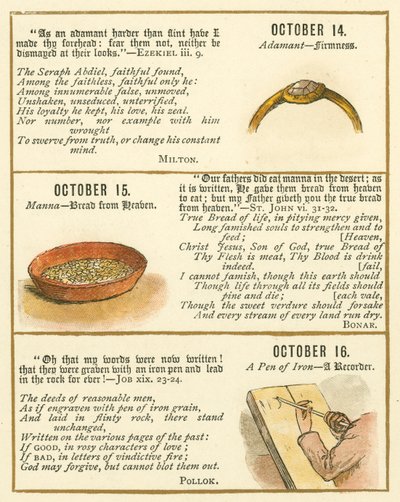 "As an adamant harder than flint have I
made thy forehead: fear them not, neither be
dismayed at their looks."—EZEKIEL iii. 9.
The Seraph Abdiel, faithful found,
Among the faithless, faithful only he:
Among innumerable false, unmoved,
Unshaken, unseduced, unterrified,
His loyalty he kept, his love, his zeal.
Nor number, nor example with him
wrought
To swerve from truth, or change his constant
mind.
MILTON.
OCTOBER 14.
Adamant—Firmness.
OCTOBER 15.
Manna—Bread from Heaven.
"Our fathers did eat manna in the desert; as
it is written, He gave them bread from heaven
to eat; but my Father giveth you the true bread
from heaven."—ST. JOHN vi. 31-32.
True Bread of life, in pitying mercy given,
Long famished souls to strengthen and to
feed; [Heaven,
Christ Jesus, Son of God, true Bread of
Thy Flesh is meat, Thy Blood is drink
indeed. [fail,
I cannot famish, though this earth should
Though life through all its fields should
pine and die; [each vale,
Though the sweet verdure should forsake
And every stream of every land run dry.
BONAR.
"Oh that my words were now written!
that they were graven with an iron pen and lead
in the rock for ever!—JOB xix. 23-24.
The deeds of reasonable men,
As if engraven with pen of iron grain,
And laid in flinty rock, there stand
unchanged,
Written on the various pages of the past:
If GOOD, in rosy characters of love;
If BAD, in letters of vindictive fire;
God may forgive, but cannot blot them out.
POLLOK.
OCTOBER 16.
A Pen of Iron—A Recorder.